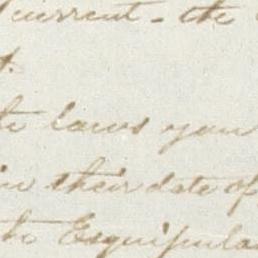 current - the
t.
laws you
in their date of
the Esquipula